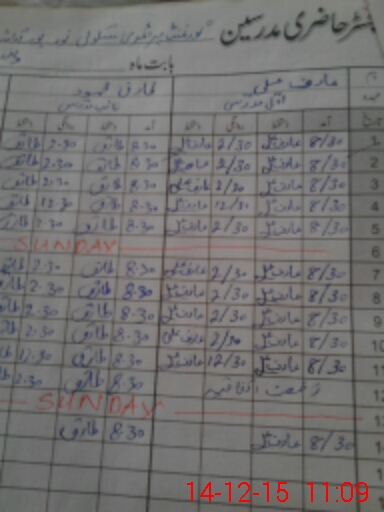 رجسٹر حاضری مدرسین گورنمنٹ پرائمری سکول نور پور
بابت ماہ
عارف علی طارق محمود
1 8/30 عارف علی 2/30 عارف علی 8.30 طارق 2.30 طارق
2 8/30 عارف علی 2/30 عارف علی 8.30 طارق 2.30 طارق
3 8/30 عارف علی 2/30 عارف علی 8.30 طارق 2.30 طارق
4 8/30 عارف علی 12/30 عارف علی 8.30 طارق 12.30 طارق
5 8/30 عارف علی 2/30 عارف علی 8.30 طارق 2.30 طارق
6 SUNDAY
7 8/30 عارف علی 2/30 عارف علی 8.30 طارق 2.30 طارق
8 8/30 عارف علی 2/30 عارف علی 8.30 طارق 2.30 طارق
9 8/30 عارف علی 2/30 عارف علی 8.30 طارق 2.30 طارق
10 8/30 عارف علی 2/30 عارف علی 8.30 طارق 2.30 طارق
11 8/30 عارف علی 12/30 عارف علی 8.30 طارق 12.30 طارق
12 رخصت اتفاقیہ 8.30 طارق 2.30 طارق
SUNDAY
8/30 عارف علی 8.30 طارق
14-12-15 11:09